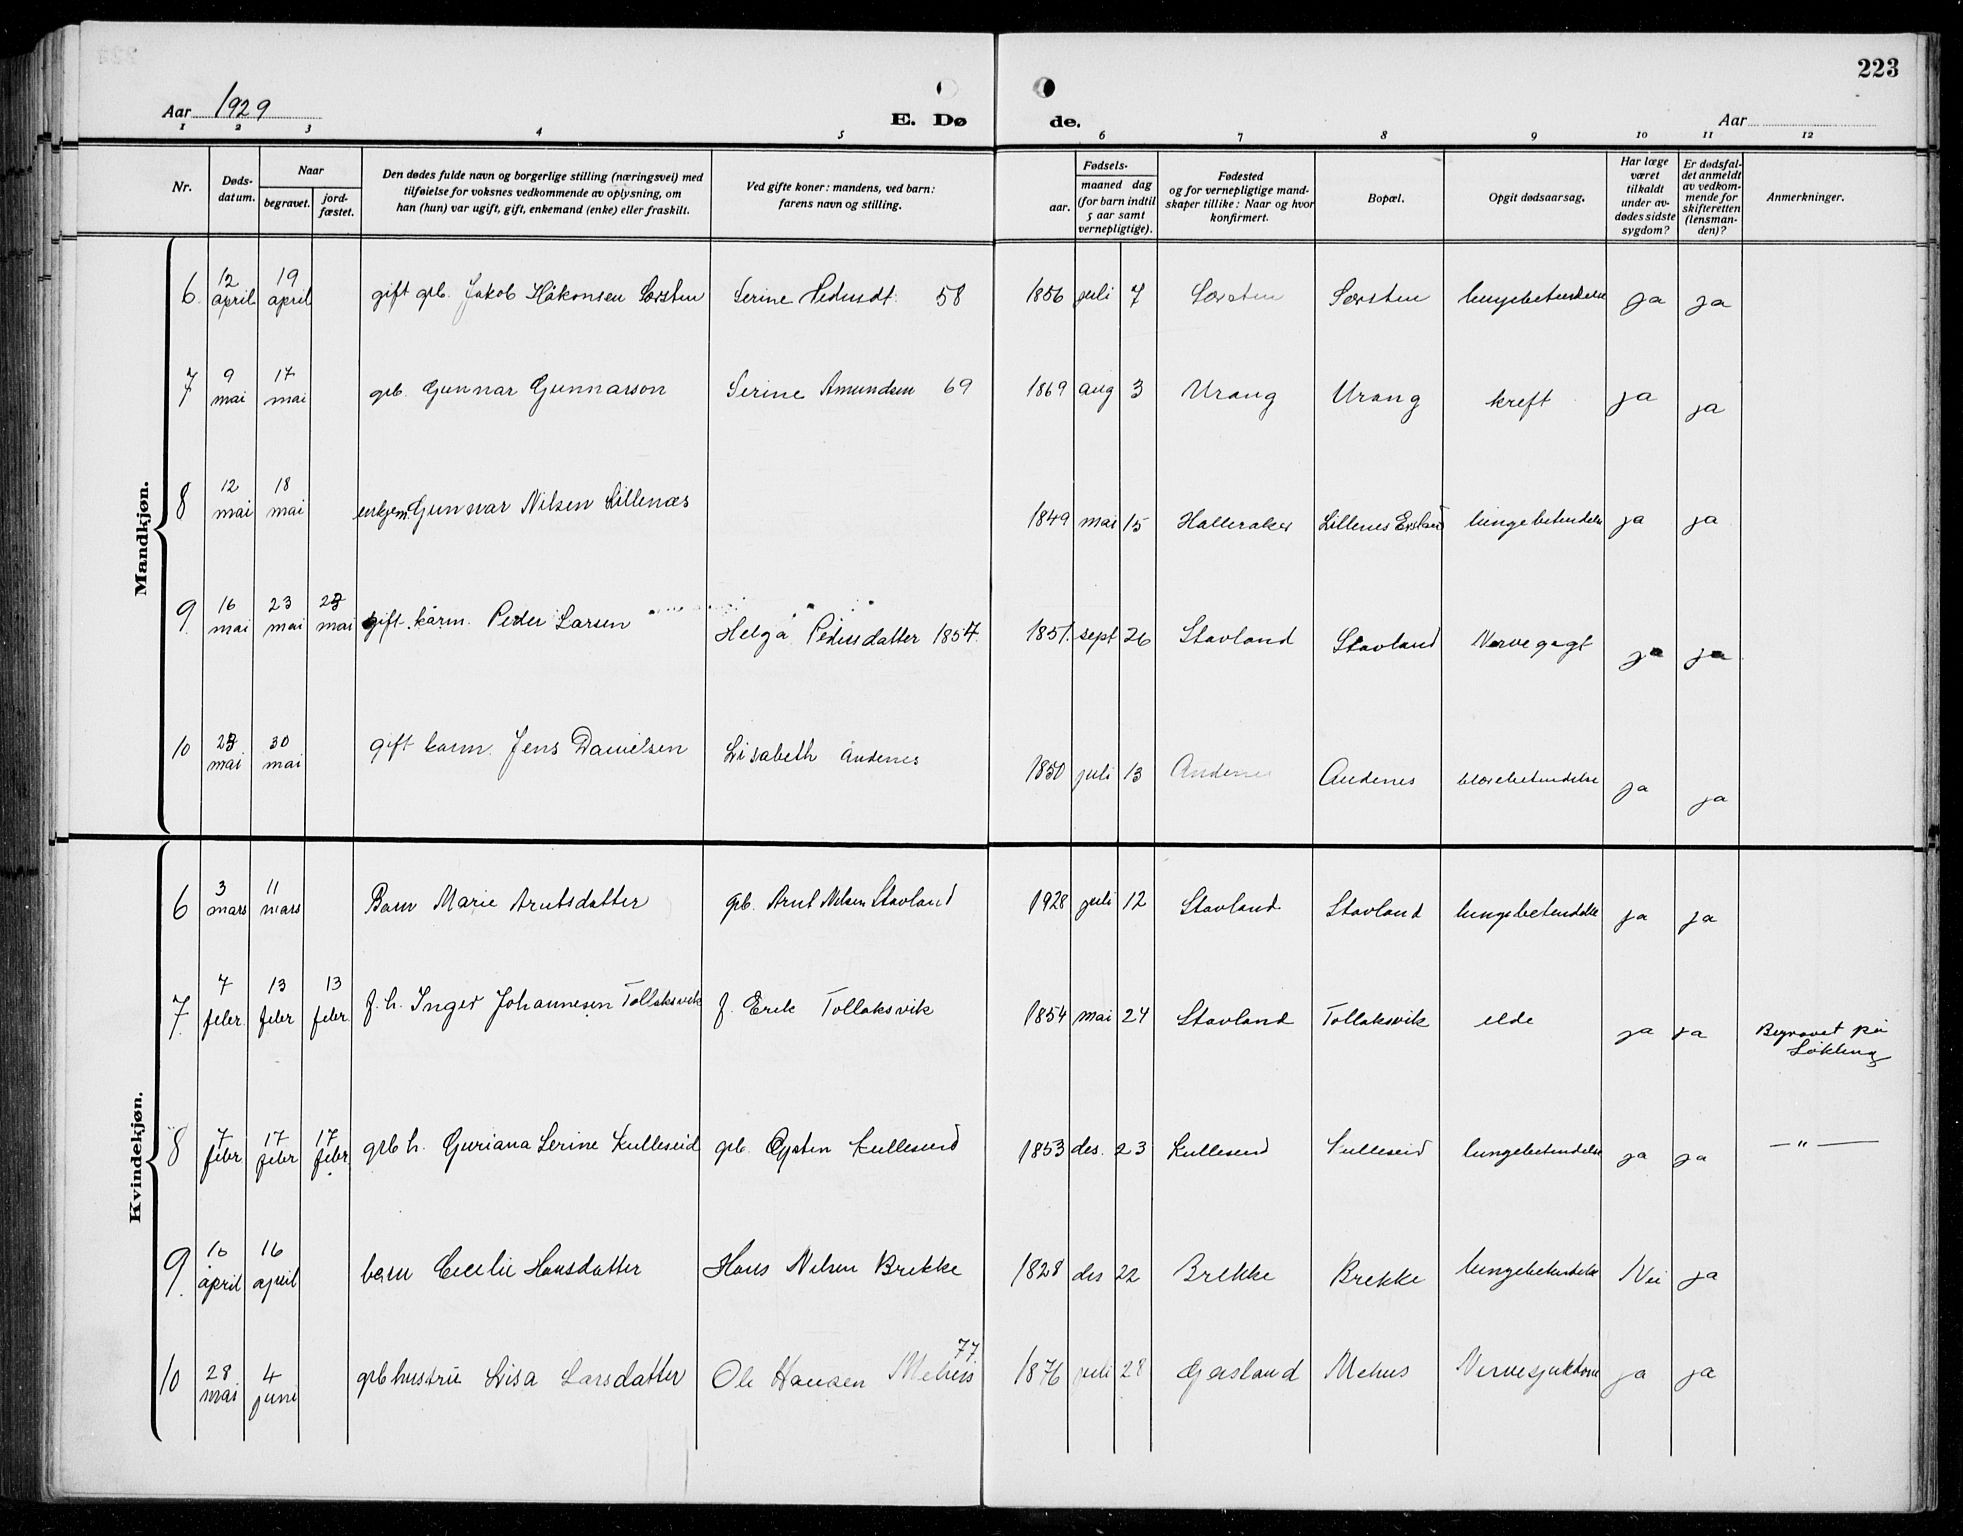 223
Aar 1929
E. Dø
de.
Aar
1 2 3 4 5 6 7 8 9 10 11 12
Nr.
Døds-
datum.
Naar
begravet.
jord-
fæstet.
Den dødes fulde navn og borgerlige stilling (næringsvei) med
tilføielse for voksnes vedkommende av oplysning, om
han (hun) var ugift, gift, enkemand (enke) eller fraskilt.
Ved gifte koner: mandens, ved barn:
farens navn og stilling.
Fødsels-
aar.
maaned dag
(for barn indtil
5 aar samt
vernepligtige).
Fødested
og for vernepligtige mand-
skaper tillike: Naar og hvor
konfirmert.
Bopæl.
Opgit dødsaarsag.
Har læge
været
tilkaldt
under av-
dødes sidste
sygdom?
Er dødsfal-
det anmeldt
av vedkom-
mende for
skifteretten
(lensman-
den)?
Anmerkninger.
Mandkjøn.
6 12 april 19 april gift grb. Jakob Håkonsen Sørsten Serine 58 1856 juli 7 Sørsten Sørsten lungebetændelse ja ja
7 9 mai 17 mai grb. Gunnar Gunnarson Serine Amundsen 69 1869 aug 3 Urang Urang kreft ja ja
8 12 mai 18 mai enkjem. Gunnar Nilsen Lillenæs 1849 mai 15 Halleraker Lillenes lungebetendelse ja ja
9. 16 mai 23 mai 23 mai gift. kårm. Peder Larsen Helga Pedersdatter 1854. 1851. sept 26 Stavland Stavland Nervegigt ja ja
10 23 mai 30 mai gift karm. Jens Danielsen Lisabeth Andenes 1850 juli 13 Andenes Andenes blærebetendelse ja ja
Kvindekjøn.
6 3 mars 11 mars Barn Marie Arntsdatter grb. Arnt Nilsen Stavland 1928 juli 12 Stavland Stavland lungebetendelse ja ja
7. 7 febr. 13 febr 13 febr f. h. Inger Johannesen Tollaksvik f. Erik Tollaksvik 1854 mai 24 Stavland Tollaksvik elde ja ja Begravet på
Løkling
8 7 febr 17 febr 17 febr. grb h. Guriana Serine Kulleseid grb. Øysten Kulleseid 1853 des. 23 Kulleseid Kulleseid lungebetendelse ja ja — " —
9. 10 april 16 april barn Cecilie Hansdatter Hans Nilsen Brekke 1828 des 22 Brekke Brekke lungebetendelse Nei ja
10 28 mai 4 juni grb hustru Lisa Larsdatter Ole Hansen Mehus 77. 1876 juli 28 Gjersland Mehus Nervesjukdom ja ja